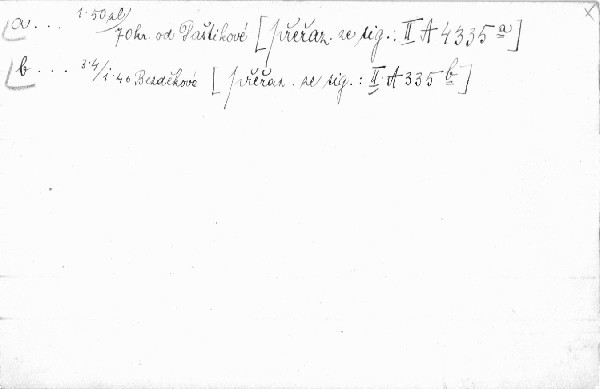 a... 1·50 zl/70 kr. od Paštikové [přeřaz. ze sig.: II A 4335 a]
b... 3·4/1·40 Bezděkové [přeřaz. ze sig.: II A 335 b]